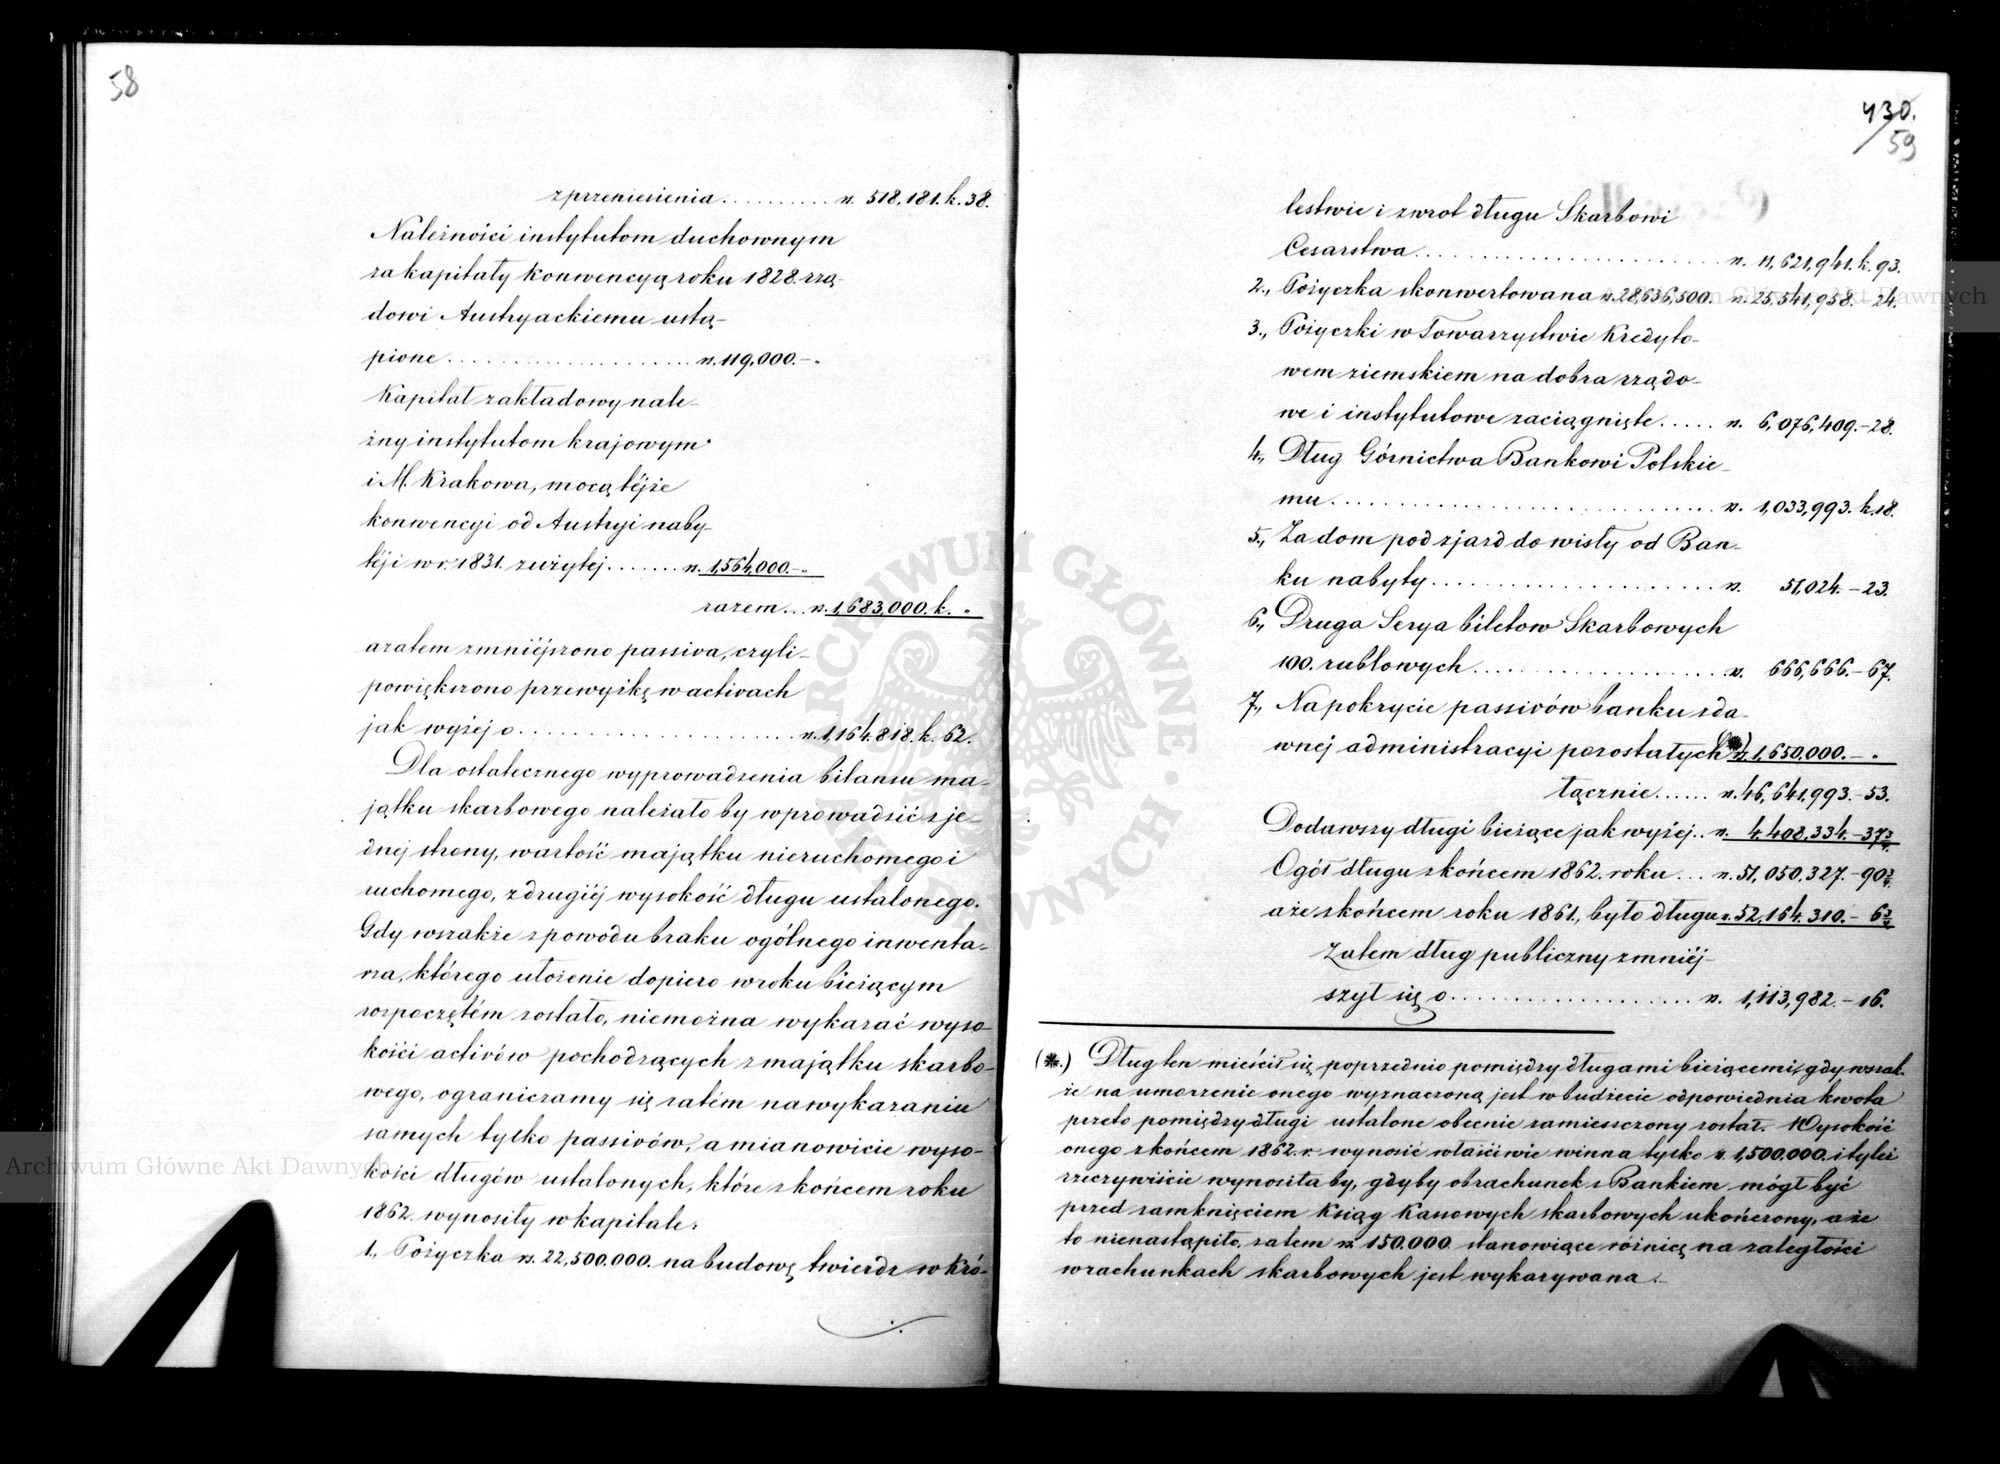 58
z przeniesienia . . . . . . . . . . rs. 518,181. k. 38.
Należności instytutom duchownym
za kapitały konwencyą roku 1828. rzą-
dowi Austryackiemu ustą-
pione . . . . . . . . . . rs. 119,000. — „
Kapitał zakładowy nale-
żny instytutom krajowym
i M. Krakowa, mocą téjże
konwencyi od Austryi naby-
téj i w r. 1831. zużytej . . . . . . . rs. 1,564,000. — „
razem . . . rs. 1,683,000. k. „
a zatem zmniéjszono passiva, czyli
powiększono przewyżkę w activach
jak wyżej o . . . . . . . . . . rs. 1,164,818. k. 62.
Dla ostatecznego wyprowadzenia bilansu ma-
jątku skarbowego należało by wprowadzić z je-
dnej strony, wartość majątku nieruchomego i
ruchomego, z drugiéj wysokość długu ustalonego.
Gdy wszakże z powodu braku ogólnego inwenta-
rza, którego ułożenie dopiero w roku bieżącym
rozpoczętém zostało, niemożna wykazać wyso-
kości activów pochodzących z majątku skarbo-
wego, ograniczamy się zatém na wykazaniu
samych tylko passivów, a mianowicie wyso-
kości długów ustalonych, które z końcem roku
1862. wynosiły w kapitale:
1., Pożyczka rs. 22,500.000. na budowę twierdz w Kró-
430.
59
lestwie i zwrot długu Skarbowi
Cesarstwa . . . . . . . . . . rs. 11,621,941. k. 93.
2., Pożyczka skonwertowana rs. 28,636,500. rs. 25,541,958. — 24.
3., Pożyczki w Towarzystwie Kredyto-
wem ziemskiem na dobra rządo-
we i instytutowe zaciągnięte . . . . . rs. 6,076,409. — 28.
4., Dług Górnictwa Bankowi Polskie-
mu . . . . . . . . . . rs. 1,033,993. k. 18.
5., Za dom pod zjazd do wisły od Ban-
ku nabyty . . . . . . . . . . rs. 51,024. — 23.
6., Druga Serya biletow Skarbowych
100. rublowych . . . . . . . . . . rs. 666,666. — 67.
7., Na pokrycie passivów banku z da-
wnej administracyi pozostałych (*) rs. 1,650,000. — „
łącznie . . . . . . rs. 46,641,993. — 53.
Dodawszy długi bieżące jak wyżej . . rs. 4,408,334. — 37¾
Ogół długu z końcem 1862. roku . . . rs. 51,050,327. — 90¾
a że z końcem roku 1861., było długu rs. 52,164,310. — 6¾
Zatem dług publiczny zmniéj-
szył się o . . . . . . . . . . rs. 1,113,982. — 16.
(*.) Dług ten mieścił się poprzednio pomiędzy długami bieżącemi, gdy wszak-
że na umorzenie onego wyznaczoną jest w budżecie odpowiednia kwota
przeto pomiędzy długi ustalone obecnie zamieszczony został. Wysokość
onego z końcem 1862. r. wynosić właściwie winna tylko rs. 1,500.000. i tyleż
rzeczywiście wynosiła by, gdyby obrachunek z Bankiem mógł być
przed zamknięciem Ksiąg Kassowych skarbowych ukończony, a że
to nienastąpiło, zatem rs. 150.000. stanowiące różnicę na zaległości
w rachunkach skarbowych jest wykazywana.
Archiwum Główne Akt Dawnych
Archiwum Główne Akt Dawnych
ARCHIWUM GŁÓWNE AKT DAWNYCH